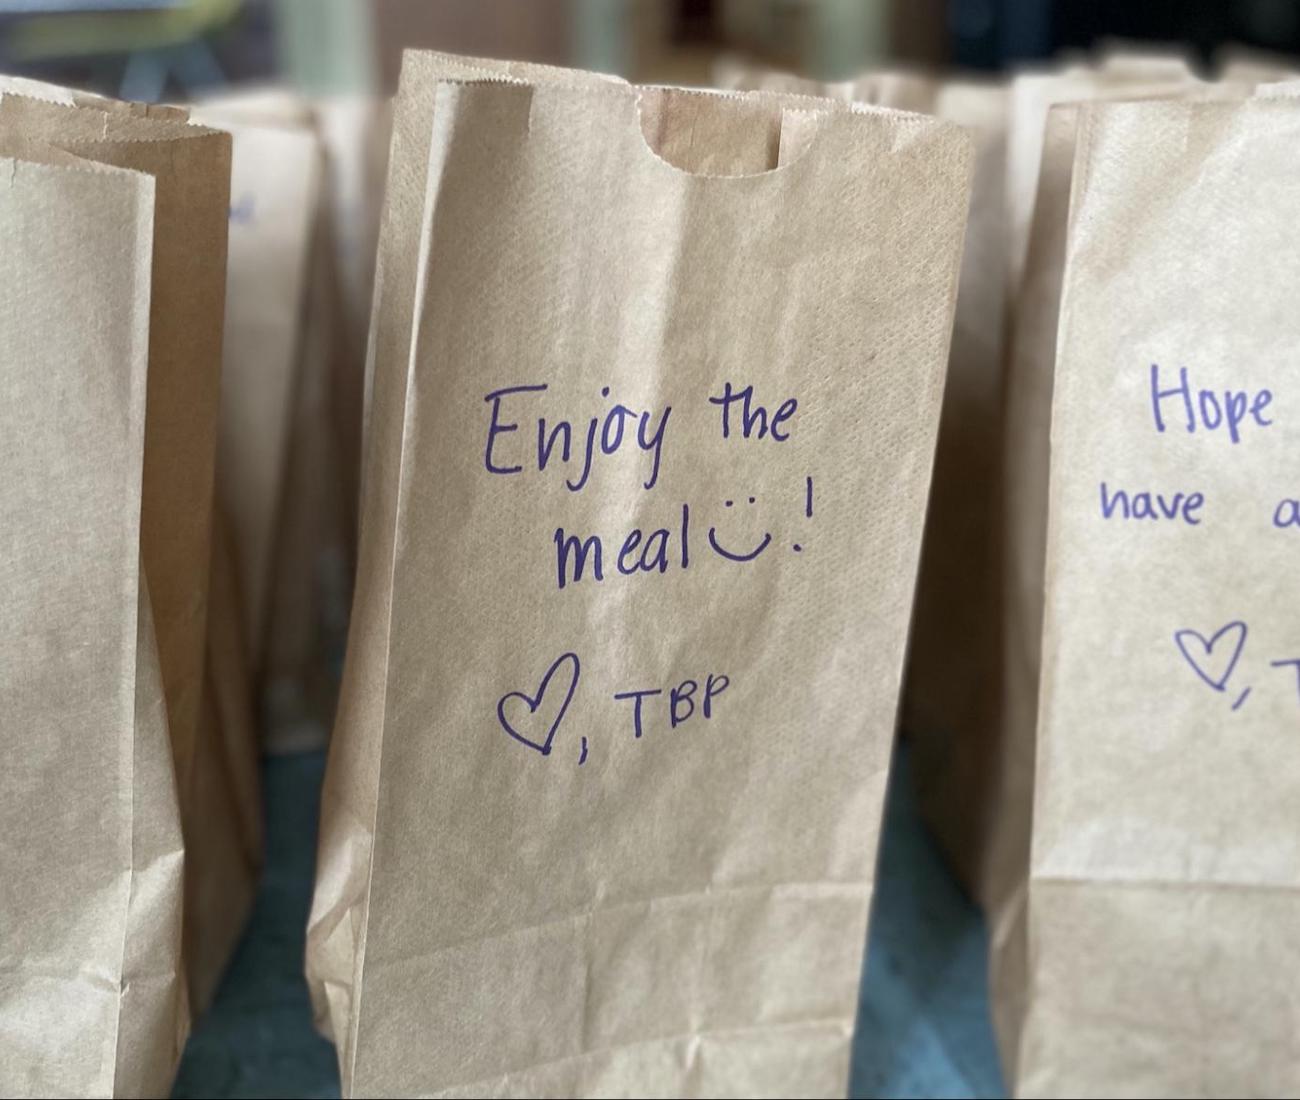 Enjoy the
meal !
♡, TBP
Hope
have a
♡, T